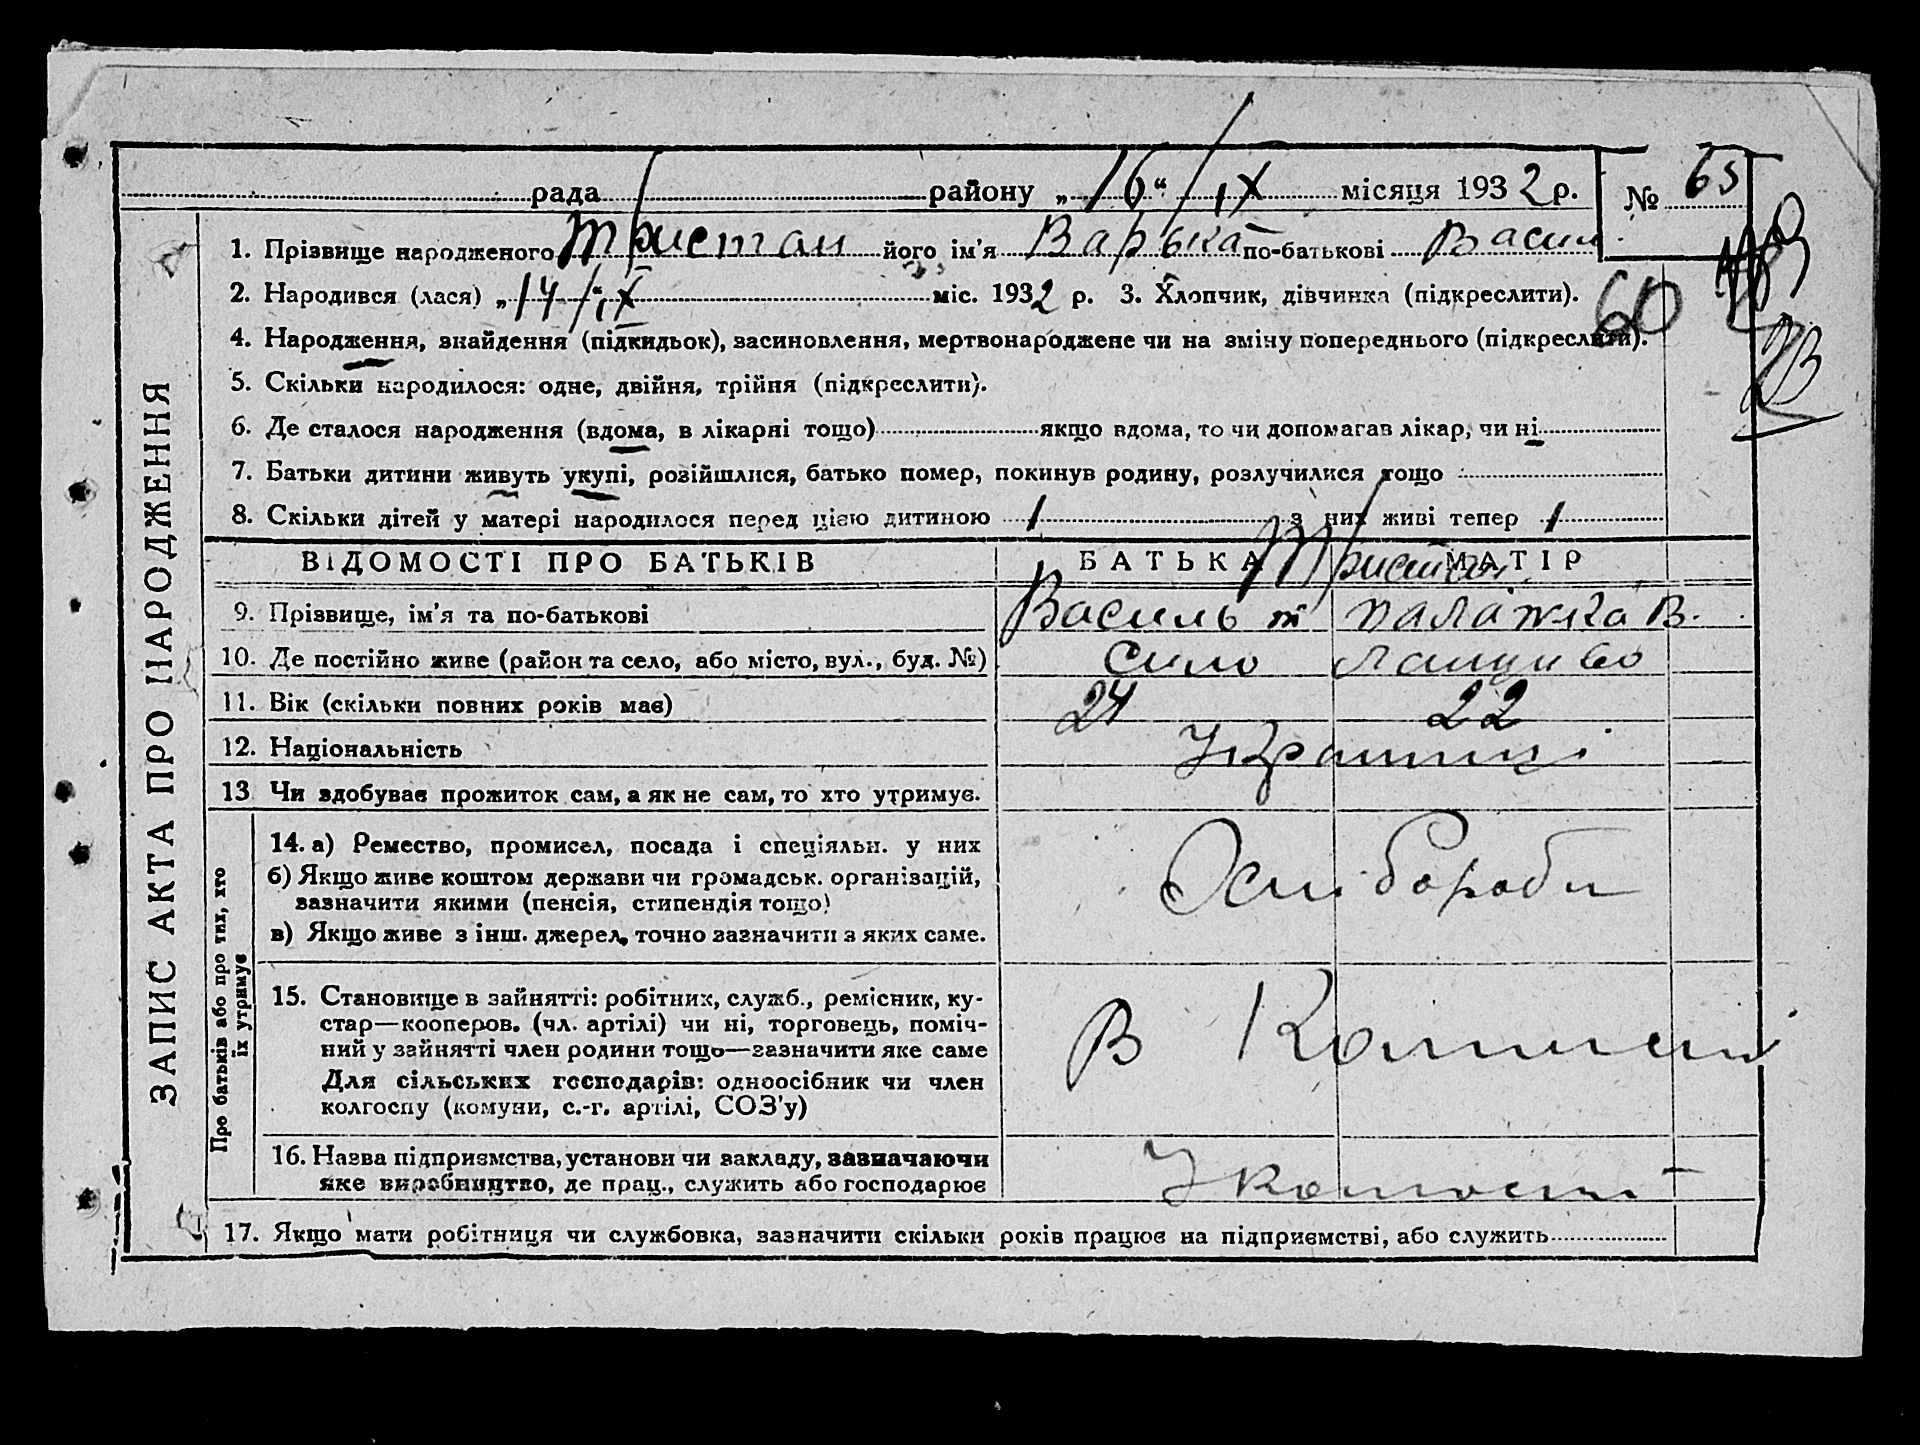 рада района „16“ IX місяця 1932 р. № 63
1. Прізвище народженого Тристан його ім’я Варька по-батькові Васил
2. Народився (лася) „14“ IX міс. 1932 р. 3. Хлопчик, дівчинка (підкреслити).
60
4. Народження, знайдення (підкидьок), засиновлення, мертвонароджене чи на зміну попереднього (підкреслити).
5. Скільки народилося: одне, двійня, трійня (підкреслити).
6. Де сталося народження (вдома, в лікарні тощо) якщо вдома, то чи допомагав лікар, чи ні
7. Батьки дитини живуть укупі, розійшлися, батько помер, покинув родину, розлучилися тощо
8. Скільки дітей у матері народилося перед цією дитиною 1 з них живі тепер 1
ЗАПИС АКТА ПРО НАРОДЖЕННЯ
ВІДОМОСТІ ПРО БАТЬКІВ БАТЬКА МАТІР
Тристан
9. Прізвище, ім’я та по-батькові Василь т Палажка В.
10. Де постійно живе (район та село, або місто, вул., буд. №) Село
11. Вік (скільки повних років має) 24 22
12. Національність Українці
13 Чи здобуває прожиток сам, а як не сам, то хто утримує.
Про батьків або про тих, хто їх утримує
14. а) Ремество, промисел, посада і спеціяльн. у них
б) Якщо живе коштом держави чи громадськ. організацій,
зазначити якими (пенсія, стипендія тощо)
в) Якщо живе з інш. джерел, точно зазначити з яких саме.
15. Становище в зайнятті: робітник, служб., ремісник, ку-
стар—кооперов. (чл. артілі) чи ні, торговець, поміч-
ний у зайнятті член родини тощо—зазначити яке саме
Для сільських господарів: одноосібник чи член
колгоспу (комуни, с.-г. артілі, СОЗ’у)
В
16. Назва підприємства, установи чи закладу, зазначаючи
яке виробництво, де прац., служить або господарює
17. Якщо мати робітниця чи службовка, зазначити скільки років працює на підприємстві, або служить